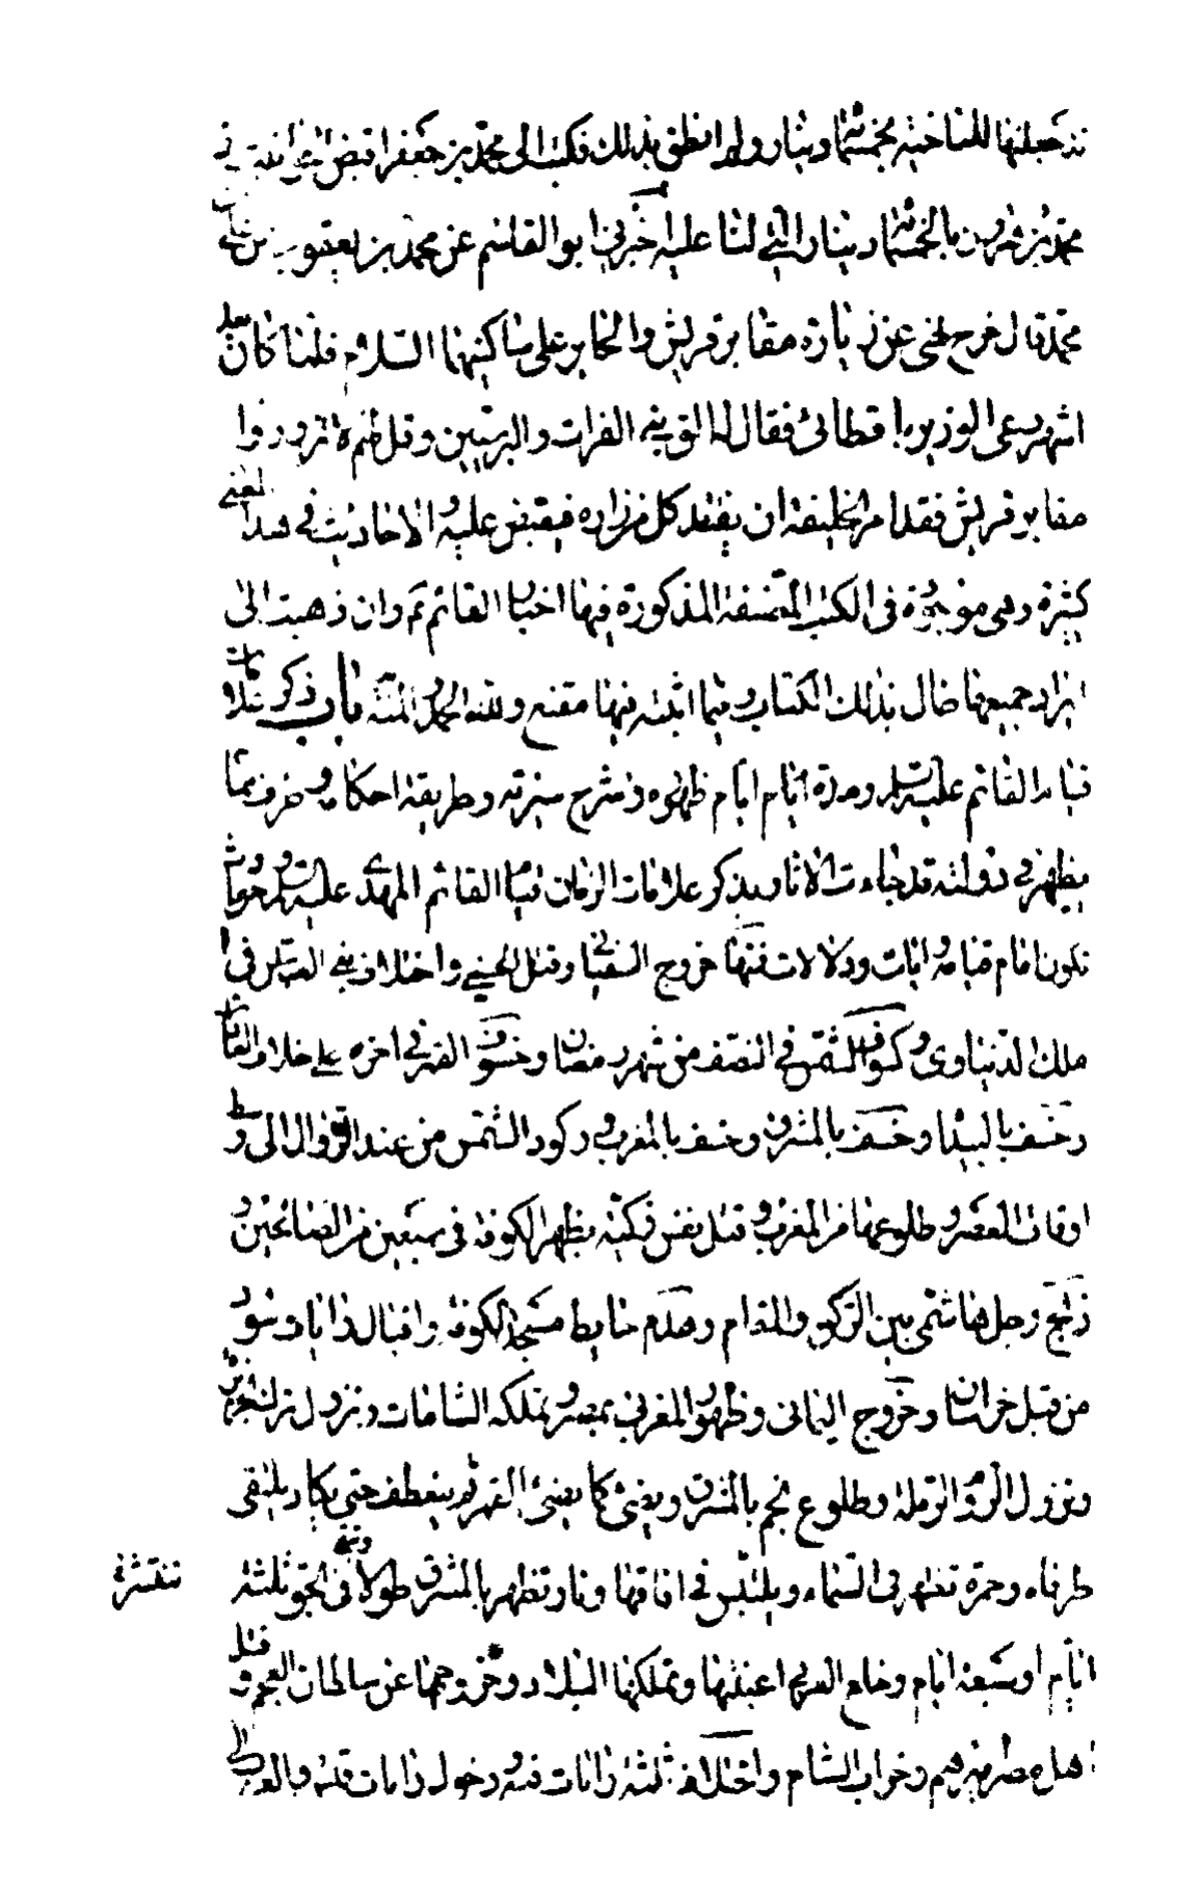 قد جعلتها للناحية بخمسمائة دينار ولم انطق بذلك فكتب الى محمد بن جعفر اقبض الحوانيت من
محمد بن هرون بالخمسمائة دينار التي لنا عليه اخبرني ابو القاسم عن محمد بن يعقوب عن علي بن
محمد قال خرج نهي عن زيارة مقابر قريش والحاير على ساكنيهما السلام فلما كان بعد
اشهر دعى الوزير الباقطائي فقال له الق بني الفرات والبرسيين وقل لهم لا تزوروا
مقابر قريش فقد امر الخليفة ان يتفقد كل من زاره فيقبض عليه والاحاديث في هذا المعنى
كثيرة وهي موجودة في الكتب المصنفة المذكورة فيها اخبار القائم ع وان ذهبت الى
ايراد جميعها طال بذلك الكتاب وفيما اثبته فيها مقنع ولله الحمد والمنة باب ذكر علامات
قيام القائم عليه السلم ومدة ايام ظهوره وشرح سيرته وطريقة احكامه وطرف مما
يظهر في دولته قد جاءت الاثار بذكر علامات لزمان قيام القائم المهدي عليه السلم وحوادث
تكون امام قيامه وايات ودلالات فمنها خروج السفياني وقتل الحسني واختلاف بني العباس في
ملك الدنياوي وكسوف الشمس في النصف من شهر رمضان وخسوف القمر في اخره على خلاف العادات
وخسف بالبيدا وخسف بالمشرق وخسف بالمغرب وركود الشمس من عند الزوال الى وسط
اوقات العصر وطلوعها من المغرب وقتل نفس زكية بظهر الكوفة في سبعين من الصالحين و
ذبح رجل هاشمي بين الركن والمقام وهدم حايط مسجد الكوفة واقبال رايات سود
من قبل خراسان وخروج اليماني وظهور المغربي بمصر وتملكه الشامات ونزول الترك الجزيرة
ونزول الروم الرملة وطلوع نجم بالمشرق ويضئ كما يضئ القمر ثم ينعطف حتى يكاد يلتقي
طرفاه وحمرة تظهر في السماء ويلتبس في افاقها ونار تظهر بالمشرق طولا وتبقى في الجو ثلثة
تنتشر
ايام او سبعة ايام وخلع العرب اعنتها وتملكها البلاد وخروجها عن سلطان العجم وقتل
اهل مصر اميرهم وخراب الشام واختلاف ثلثة رايات فيه ودخول رايات قيس والعرب الى